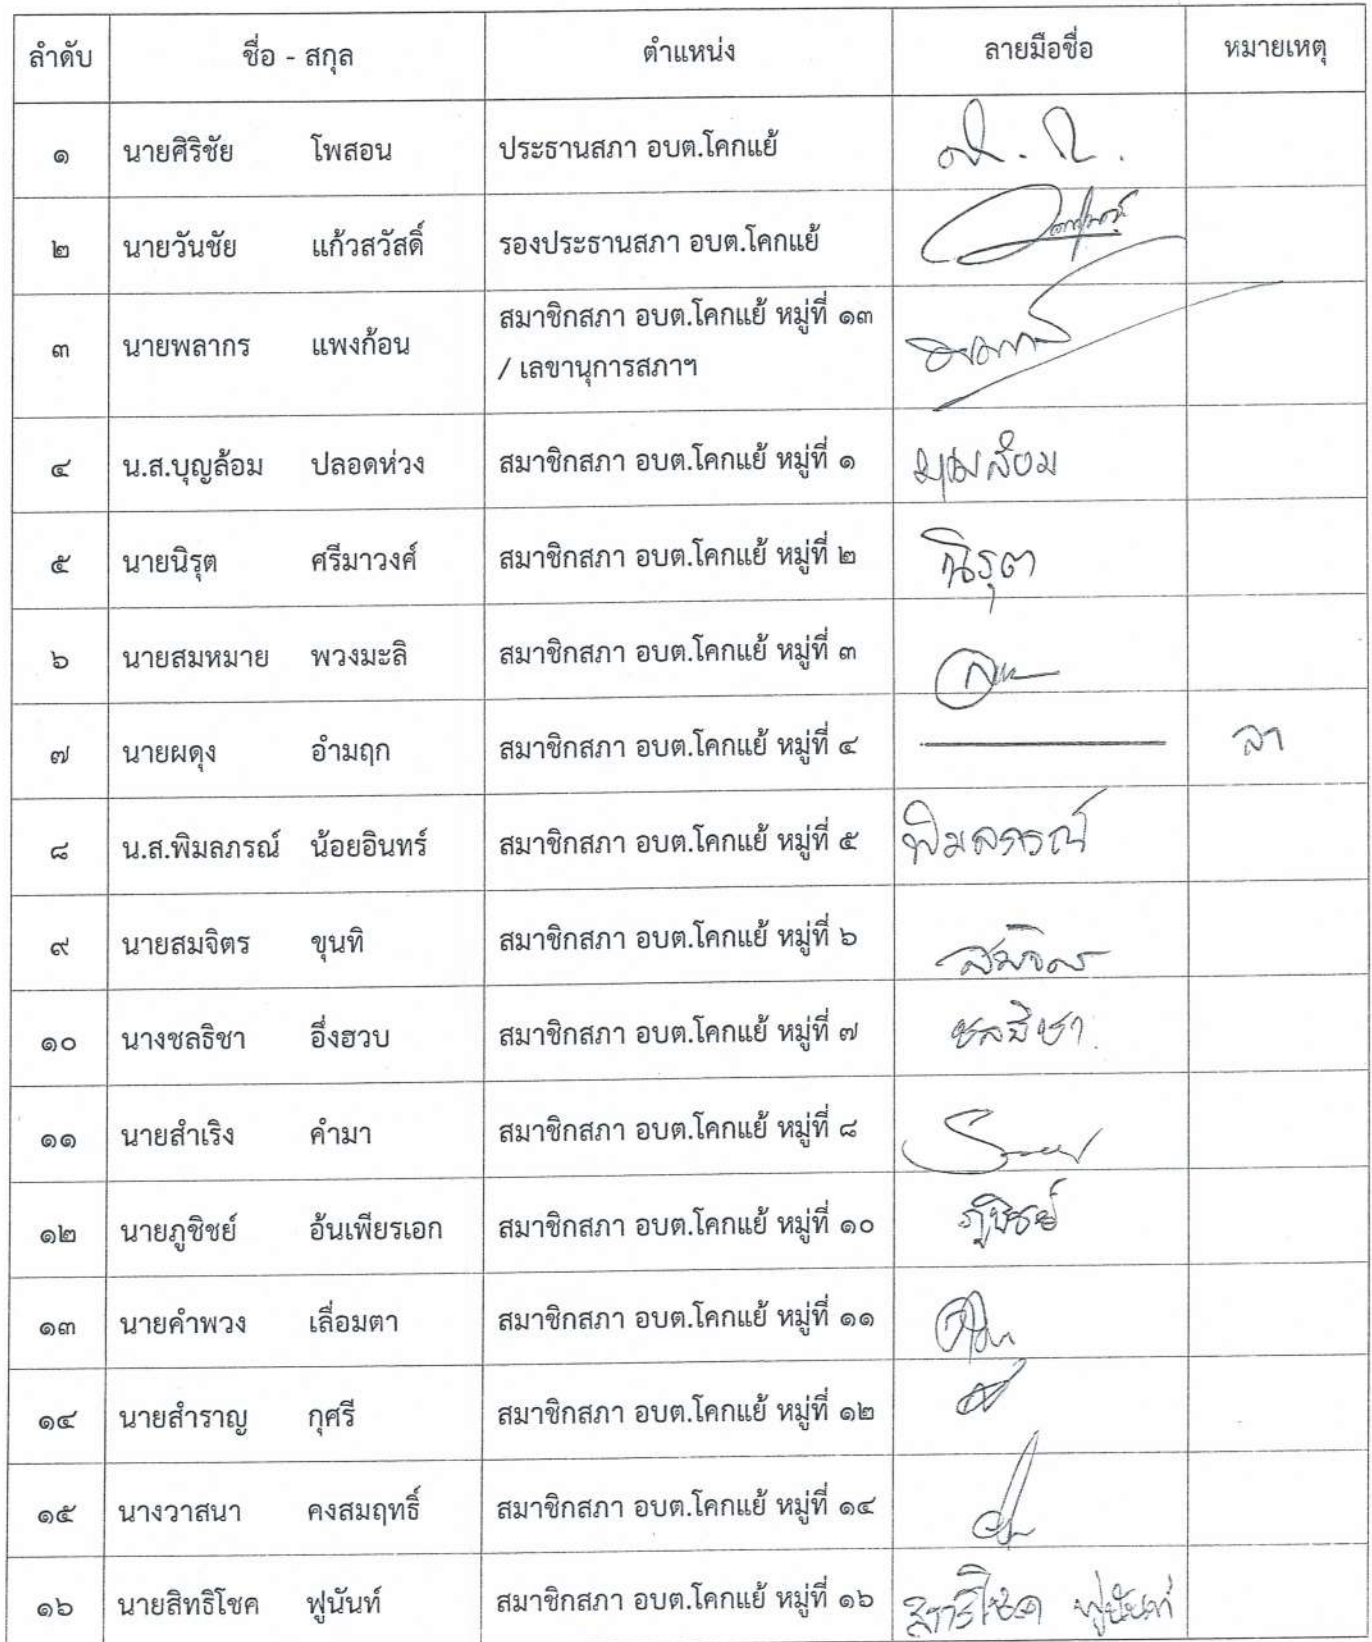 ลำดับ ชื่อ - สกุล ตำแหน่ง ลายมือชื่อ หมายเหตุ
๑ นายศิริชัย โพสอน ประธานสภา อบต.โคกแย้
๒ นายวันชัย แก้วสวัสดิ์ รองประธานสภา อบต.โคกแย้
๓ นายพลากร แพงก้อน สมาชิกสภา อบต.โคกแย้ หมู่ที่ ๑๓
/ เลขานุการสภาฯ
๔ น.ส.บุญล้อม ปลอดห่วง สมาชิกสภา อบต.โคกแย้ หมู่ที่ ๑ บุญล้อม
๕ นายนิรุต ศรีมาวงศ์ สมาชิกสภา อบต.โคกแย้ หมู่ที่ ๒ นิรุต
๖ นายสมหมาย พวงมะลิ สมาชิกสภา อบต.โคกแย้ หมู่ที่ ๓
๗ นายผดุง อำมฤก สมาชิกสภา อบต.โคกแย้ หมู่ที่ ๔ ลา
๘ น.ส.พิมลภรณ์ น้อยอินทร์ สมาชิกสภา อบต.โคกแย้ หมู่ที่ ๕ พิมลภรณ์
๙ นายสมจิตร ขุนทิ สมาชิกสภา อบต.โคกแย้ หมู่ที่ ๖ สมจิตร
๑๐ นางชลธิชา อึ่งฮวบ สมาชิกสภา อบต.โคกแย้ หมู่ที่ ๗ ชลธิชา
๑๑ นายสำเริง คำมา สมาชิกสภา อบต.โคกแย้ หมู่ที่ ๘
๑๒ นายภูชิชย์ อ้นเพียรเอก สมาชิกสภา อบต.โคกแย้ หมู่ที่ ๑๐ ภูชิชย์
๑๓ นายคำพวง เลื่อมตา สมาชิกสภา อบต.โคกแย้ หมู่ที่ ๑๑
๑๔ นายสำราญ กุศรี สมาชิกสภา อบต.โคกแย้ หมู่ที่ ๑๒
๑๕ นางวาสนา คงสมฤทธิ์ สมาชิกสภา อบต.โคกแย้ หมู่ที่ ๑๔
๑๖ นายสิทธิโชค ฟูนันท์ สมาชิกสภา อบต.โคกแย้ หมู่ที่ ๑๖ สิทธิโชค ฟูนันท์